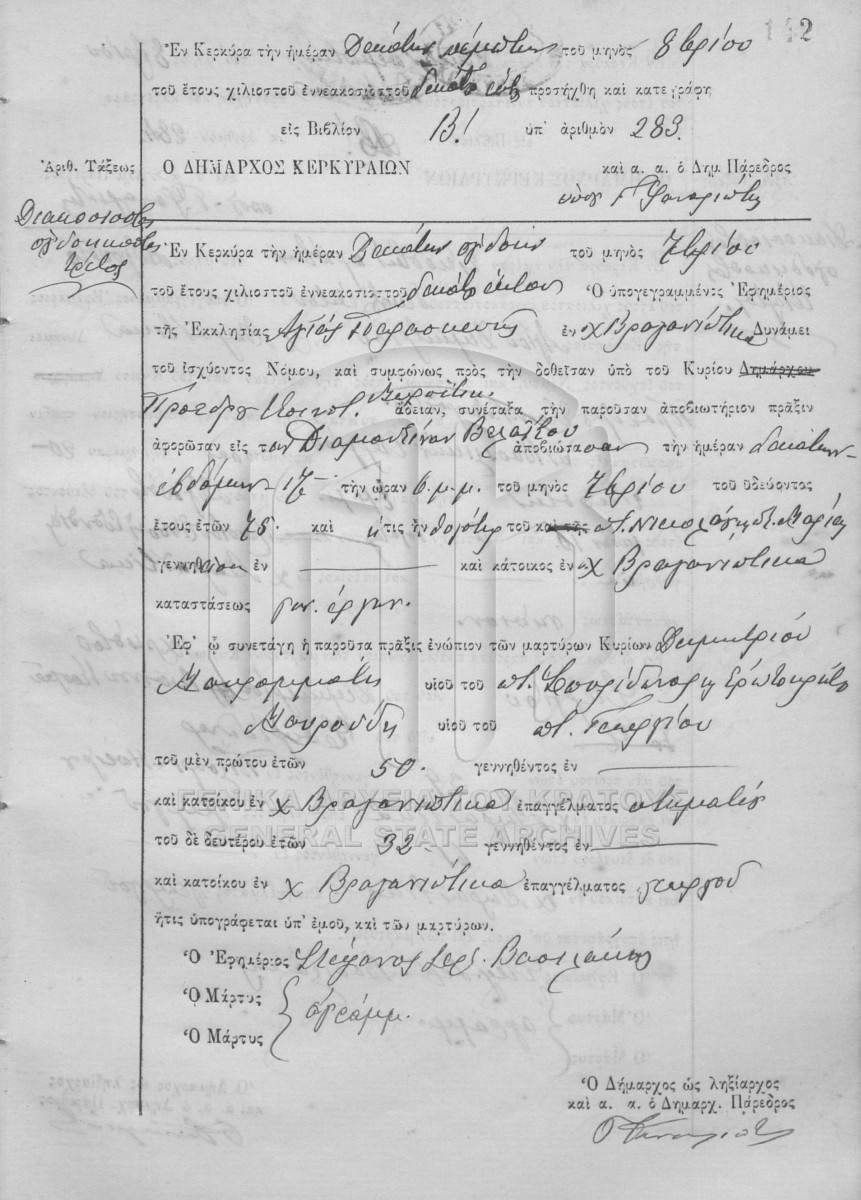 142
Ἐν Κερκύρα τὴν ἡμέραν Δεκάτην πέμπτην τοῦ μηνὸς 8βρίου
τοῦ ἔτους χιλιοστοῦ ἐννεακοσιοστοῦ δεκάτου προσήχθη καὶ κατεγράφη
εἰς Βιβλίον Β! ὑπ' ἀριθμὸν 283.
Ἀριθ. Τάξεως Ο ΔΗΜΑΡΧΟΣ ΚΕΡΚΥΡΑΙΩΝ καὶ α. α. ὁ Δημ Πάρεδρος
Διακοσιοστὸς
ὀγδοηκοστὸς
τρίτος
Ἐν Κερκύρα τὴν ἡμέραν Δεκάτην ὀγδόην τοῦ μηνὸς 7βρίου
τοῦ ἔτους χιλιοστοῦ ἐννεακοσιοστοῦ δεκάτου ἕκτου Ὁ ὑπογεγραμμένος Ἐφημέριος
τῆς Ἐκκλησίας Ἁγίας Παρασκευῆς ἐν χ Βραγανιώτικα Δυνάμει
τοῦ ἰσχύοντος Νόμου, καὶ συμφώνως πρὸς τὴν δοθεῖσαν ὑπὸ τοῦ Κυρίου Δημάρχου
Προέδρου Κοινοτ. ἄδειαν, συνέταξα τὴν παροῦσαν ἀποβιωτήριον πρᾶξιν
ἀφορῶσαν εἰς τὴν Διαμαντίναν ἀποβιώσασαν τὴν ἡμέραν δεκάτην
ἑβδόμην 17 τὴν ὥραν 6. μ. μ. τοῦ μηνὸς 7βρίου τοῦ ὁδεύοντος
ἔτους ἐτῶν 75. καὶ ἥτις ἦν θυγάτηρ τοῦ καὶ τῆς ποτ. Νικολάου Μαρίας
γεννηθεῖσα ἐν — καὶ κάτοικος ἐν χ Βραγανιώτικα
καταστάσεως
Ἐφ' ᾧ συνετάγη ἡ παροῦσα πρᾶξις ἐνώπιον τῶν μαρτύρων Κυρίων Δημητρίου
Μαυρομμάτη υἱοῦ τοῦ ποτ. Σπυρίδωνος Ἐρωτοκρίτου
Μαυρούδη υἱοῦ τοῦ ποτ. Γεωργίου
τοῦ μὲν πρώτου ἐτῶν 50. γεννηθέντος ἐν —
καὶ κατοίκου ἐν χ Βραγανιώτικα ἐπαγγέλματος κτηματίου
τοῦ δὲ δευτέρου ἐτῶν 32 γεννηθέντος ἐν —
καὶ κατοίκου ἐν χ Βραγανιώτικα ἐπαγγέλματος γεωργοῦ
ἥτις ὑπογράφεται ὑπ' ἐμοῦ, καὶ τῶν μαρτύρων.
Ὁ Ἐφημέριος Στέφανος Ἱερ. Βασιλάκης
Ὁ Μάρτυς
ἀγράμμ.
Ὁ Μάρτυς
Ὁ Δήμαρχος ὡς ληξίαρχος
καὶ α. α. ὁ Δημαρχ. Πάρεδρος
ΓΕΝΙΚΑ ΑΡΧΕΙΑ ΤΟΥ ΚΡΑΤΟΥΣ
GENERAL STATE ARCHIVES